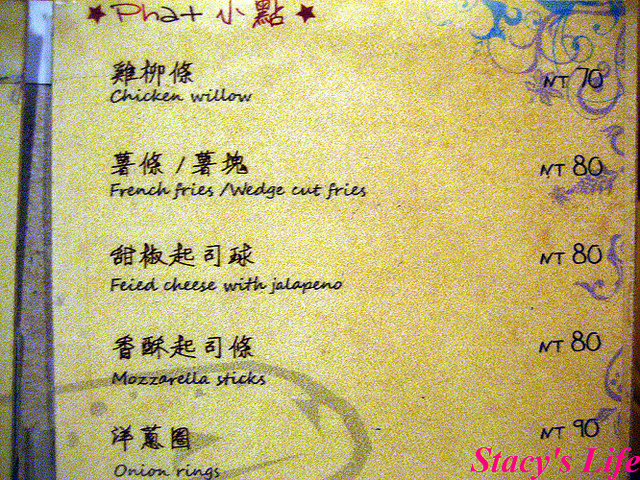 ★ Phat 小點 ★
雞柳條 NT 70
Chicken willow
薯條 / 薯塊 NT 80
French fries / Wedge cut fries
甜椒起司球 NT 80
Feied cheese with jalapeno
香酥起司條 NT 80
Mozzarella sticks
洋蔥圈 NT 90
Onion rings
Stacy's Life